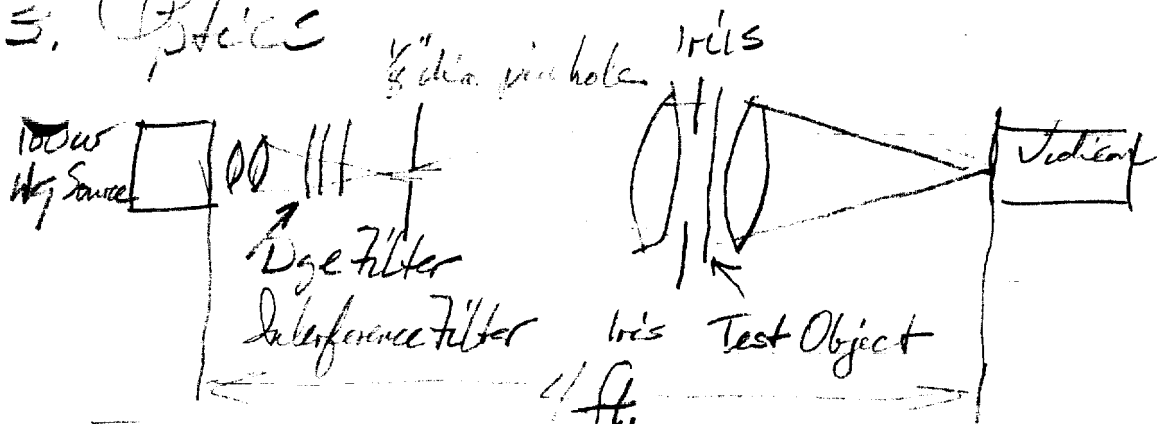 5. Optics
Iris
⅛" dia pinhole
100w
Hg Source
Vidicon
Dye Filter
Interference Filter
Iris Test Object
4 ft.